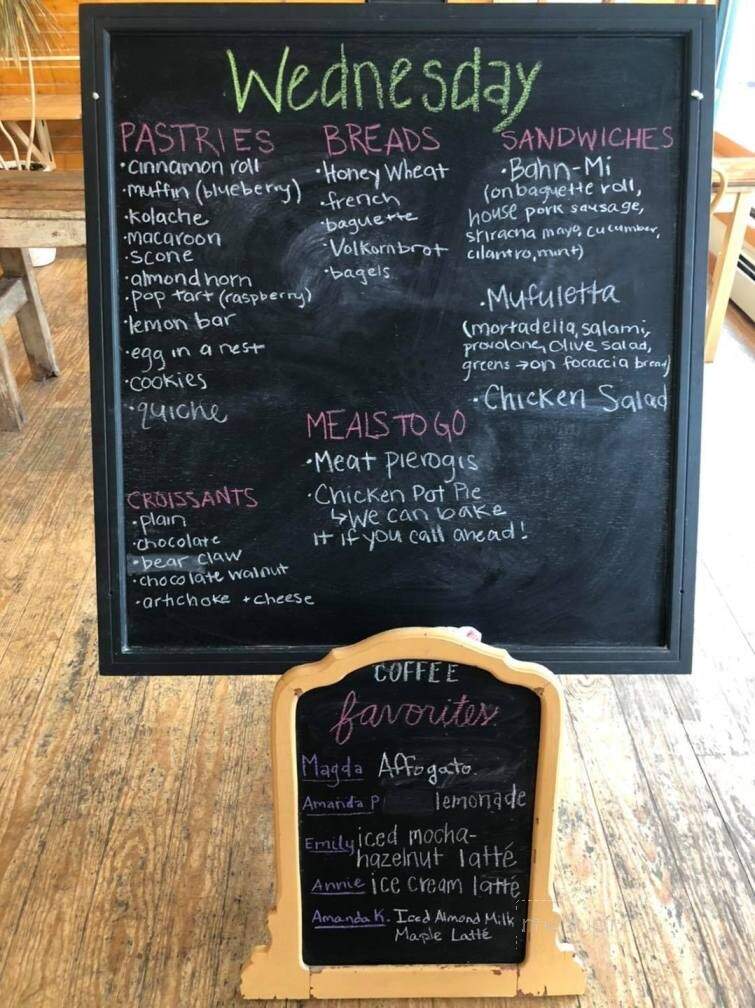 Wednesday
PASTRIES
•cinnamon roll
•muffin (blueberry)
•kolache
•macaroon
•scone
•almond horn
•pop tart (raspberry)
•lemon bar
•egg in a nest
•cookies
•quiche
CROISSANTS
•plain
•chocolate
•bear claw
•chocolate walnut
•artichoke + cheese
BREADS
•Honey Wheat
•french
•baguette
•Volkornbrot
•bagels
MEALS TO GO
•Meat pierogis
•Chicken Pot Pie
↳We can bake
it if you call ahead!
SANDWICHES
•Bahn-Mi
(on baguette roll,
house pork sausage,
sriracha mayo, cucumber,
cilantro, mint)
•Mufuletta
(mortadella, salami,
provolone, olive salad,
greens →on focaccia bread)
•Chicken Salad
COFFEE
favorites
Magda Affogato
Amanda P lemonade
Emily iced mocha-
hazelnut latté
Annie ice cream latté
Amanda K. Iced Almond Milk
Maple Latté